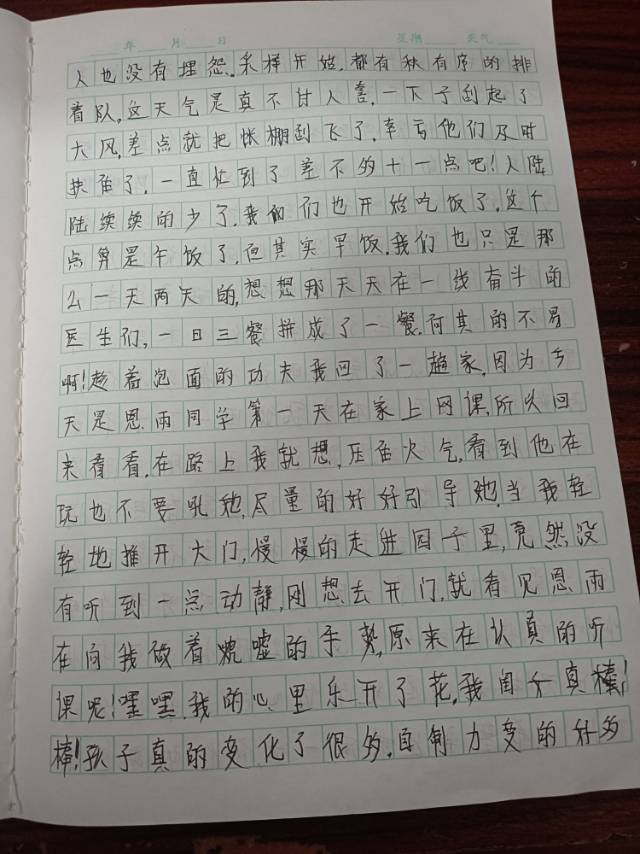 年 月 日 星期 天气
人也没有埋怨,采样开始,都有秩有序的排
着队,这天气是真不讨人喜,一下子刮起了
大风,差点就把帐棚刮飞了,幸亏他们及时
扶住了,一直忙到了差不多十一点吧!人陆
陆续续的少了,我们们也开始吃饭了,这个
点算是午饭了,但其实早饭,我们也只是那
么一天两天的,想想那天天在一线奋斗的
医生们,一日三餐拼成了一餐,何其的不易
啊!趁着泡面的功夫我回了一趟家,因为今
天是恩雨同学第一天在家上网课,所以回
来看看,在路上我就想,压住火气,看到他在
玩也不要吼她,尽量的好好引导她,当我轻
轻地推开大门,慢慢的走进园子里,竟然没
有听到一点动静,刚想去开门,就看见恩雨
在向我做着嘘的手势,原来在认真的听
课呢!嘿嘿,我的心里乐开了花,我闺女真棒!
棒!孩子真的变化了很多,自制力变的好多